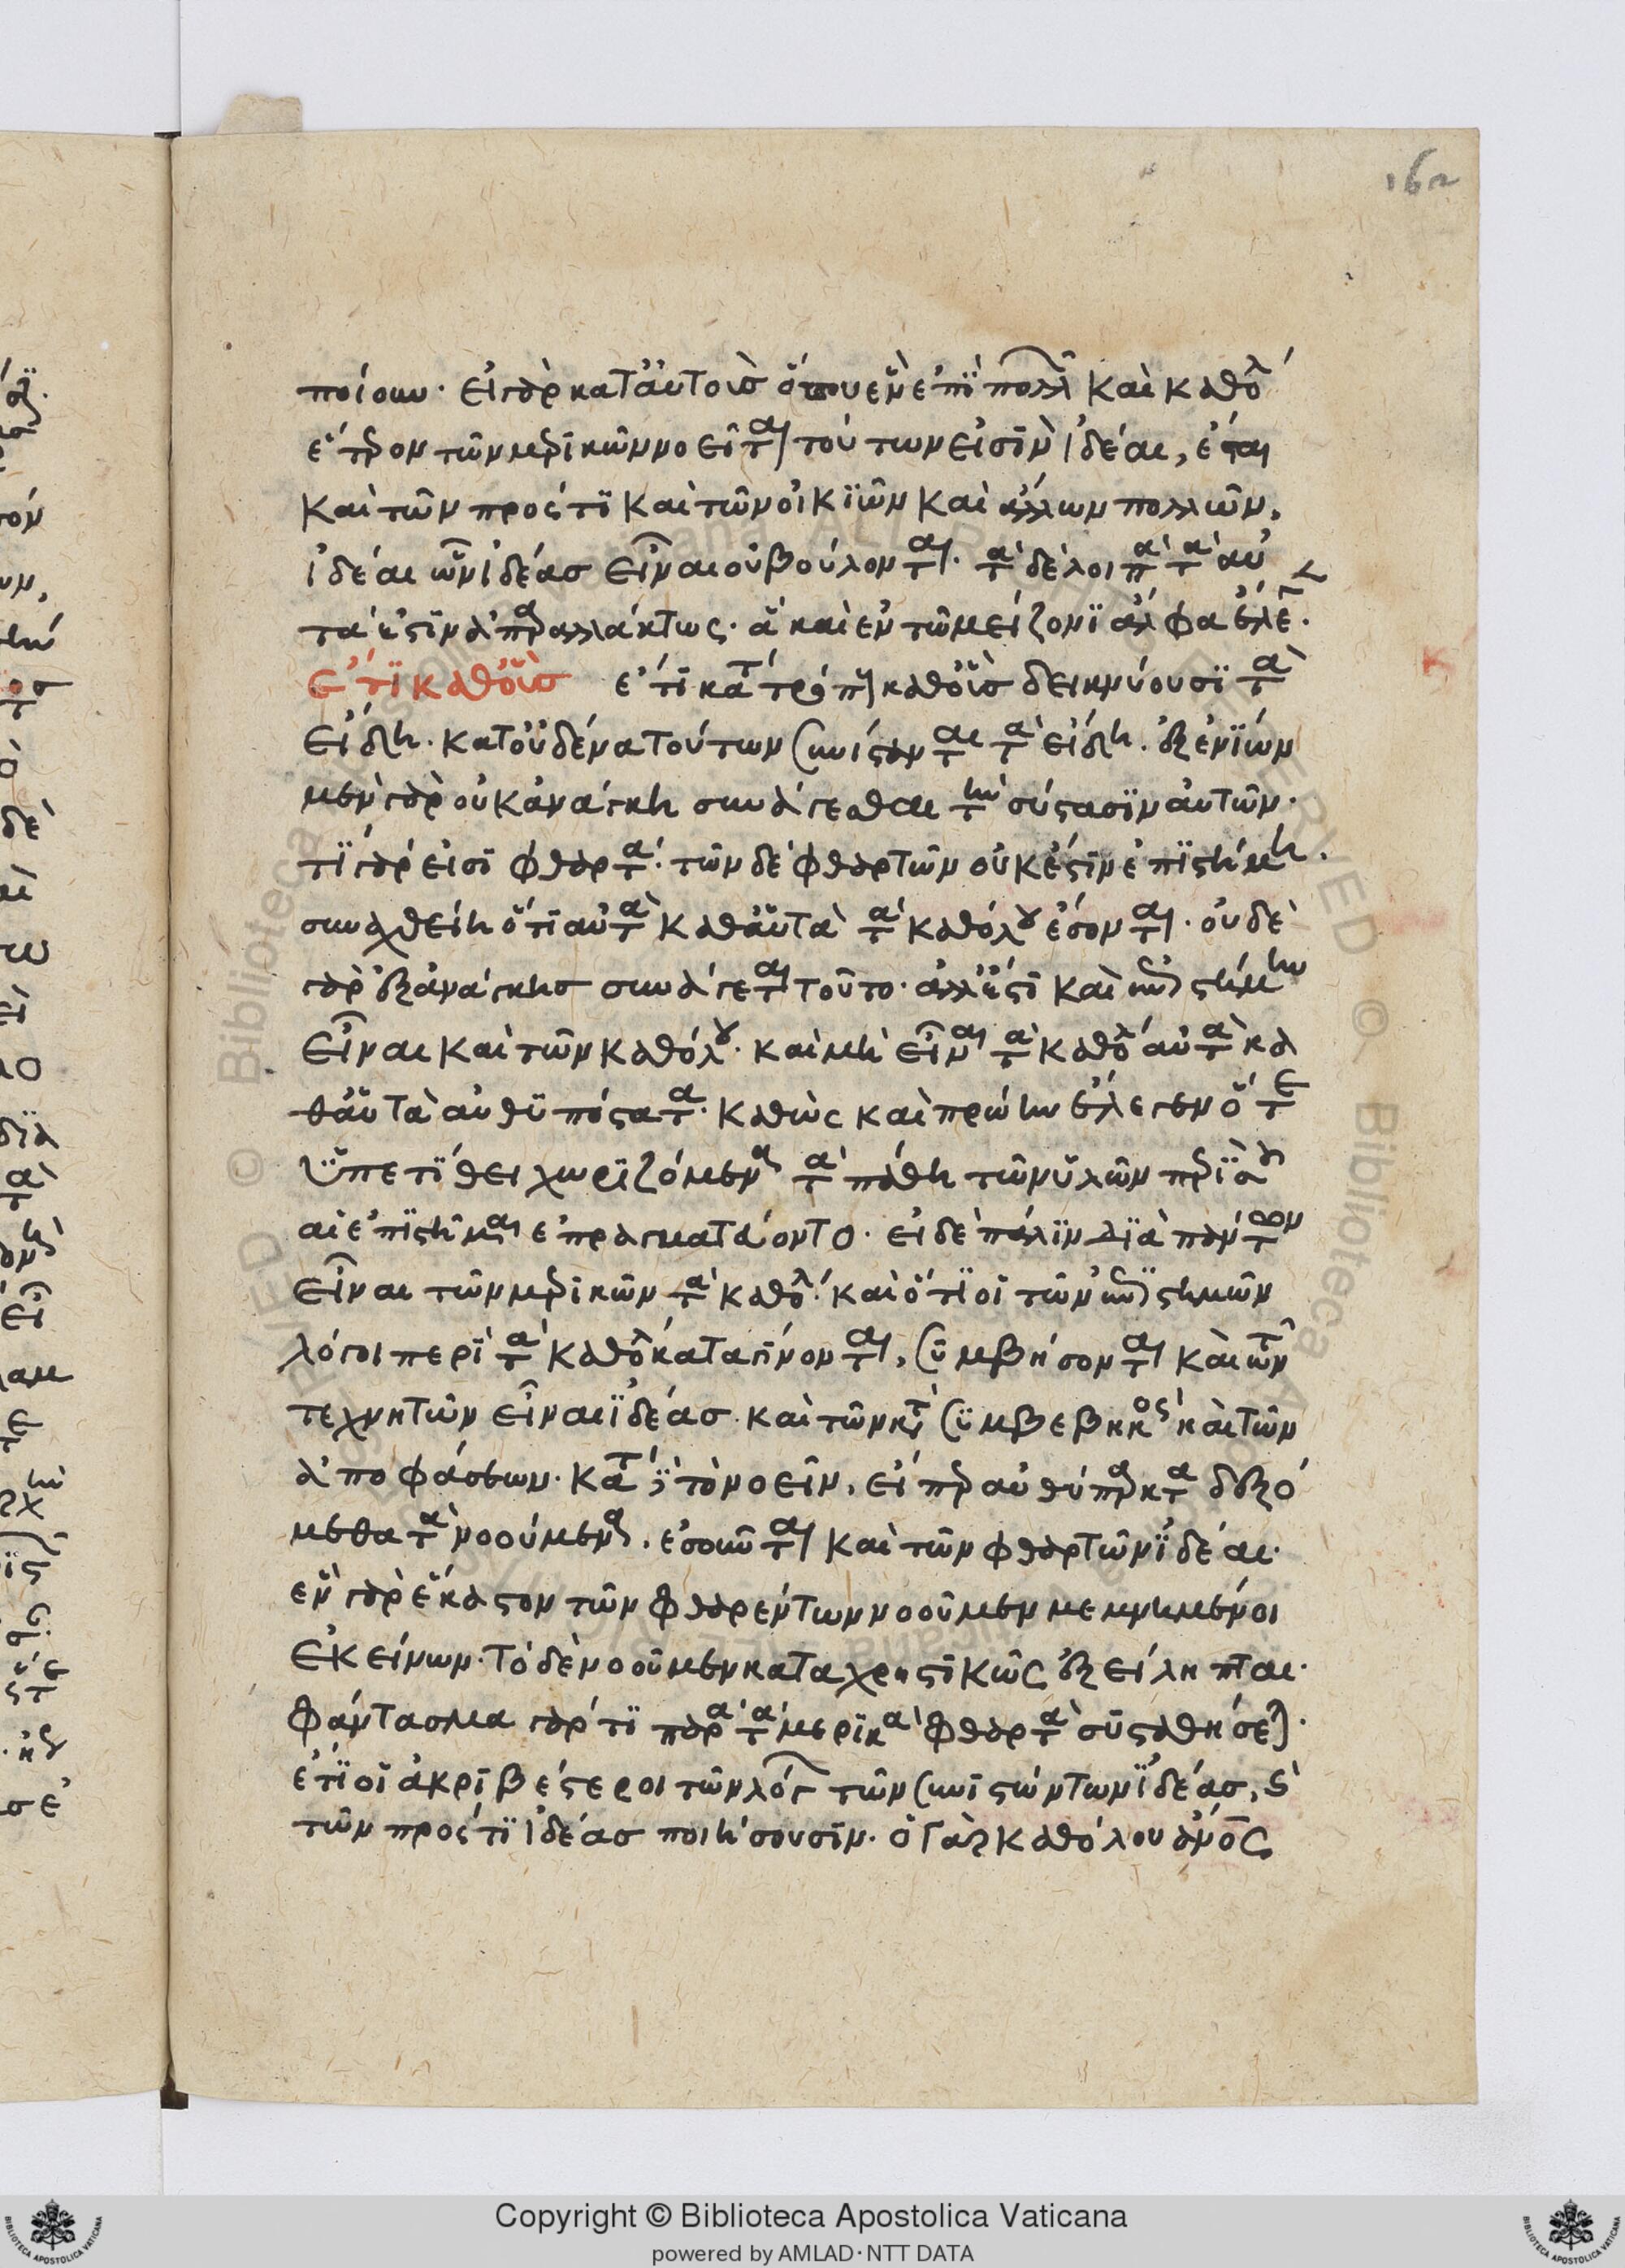 162
ποίουν· εἰ γὰρ κατ' αὐτοὺς ὅπου ἓν ἐπὶ πολλῶν καὶ καθόλου
ἕτερον τῶν μερικῶν νοεῖται τούτων εἰσὶν ἰδέαι, ἔσται
καὶ τῶν πρός τι καὶ τῶν οἰκιῶν καὶ ἄλλων πολλῶν,
ἰδέαι ὧν ἰδέας εἶναι οὐ βούλονται· τὰ δὲ λοιπὰ τὰ αὐ
τά ἐστιν ἀπαραλλάκτως· ἃ καὶ ἐν τῶ μείζονι ἄλφα ἔλεγε.
Ἔτι καθ' οὓς ἔτι κατὰ τρόπον καθ' οὓς δεικνύουσι τὰ
εἴδη· κατ' οὐδένα τούτων συνίστανται τὰ εἴδη. ἐξ ἐνίων
μὲν γὰρ οὐκ ἀνάγκη συνάγεσθαι τὴν σύστασιν αὐτῶν·
τί γάρ εἰσι φθαρτά· τῶν δὲ φθαρτῶν οὐκ ἔστιν ἐπιστήμη·
συναχθείη ὅτι αὐτὰ καθ' αὑτὰ τὰ καθόλου ἔσονται· οὐδὲ
γὰρ ἐξ ἀνάγκης συνάγεται τοῦτο· ἀλλ' ἔστι καὶ ἐπιστήμην
εἶναι καὶ τῶν καθόλου· καὶ μὴ εἶναι τὰ καθόλου αὐτὰ κα
θ' αὑτὰ αὐθυπόστατα· καθὼς καὶ πρώην ἔλεγεν ὅτε
ὑπετίθει χωριζόμενα τὰ πάθη τῶν ὑλῶν περὶ ἃ δὴ
αἱ ἐπιστῆμαι ἐπραγματεύοντο· εἰ δὲ πάλιν διὰ πάντων
εἶναι τῶν μερικῶν τὰ καθόλου· καὶ ὅτι οἱ τῶν ἐπιστημῶν
λόγοι περὶ τὰ καθόλου καταγίνονται, συμβήσονται καὶ τῶν
τεχνητῶν εἶναι ἰδέας· καὶ τῶν κατὰ συμβεβηκός· καὶ τῶν
ἀποφάσεων· κατὰ γε τὸ νοεῖν, εἴπερ αὐθύπαρκτα δεξό
μεθα τὰ νοούμενα, ἔσονται καὶ τῶν φθαρτῶν ἰδέαι·
ἓν γὰρ ἕκαστον τῶν φθαρέντων νοοῦμεν μεμνημένοι
ἐκείνων· τὸ δὲ νοοῦμεν καταχρηστικῶς ἐξείληπται·
φάντασμα γάρ τι παρὰ τὰ μερικὰ φθαρτὰ συσταθήσεται·
ἔτι οἱ ἀκριβέστεροι τῶν λόγων τῶν συνιστώντων ἰδέας, καὶ
τῶν πρός τι ἰδέας ποιήσουσιν· ὁ γὰρ καθόλου ἄνθρωπος